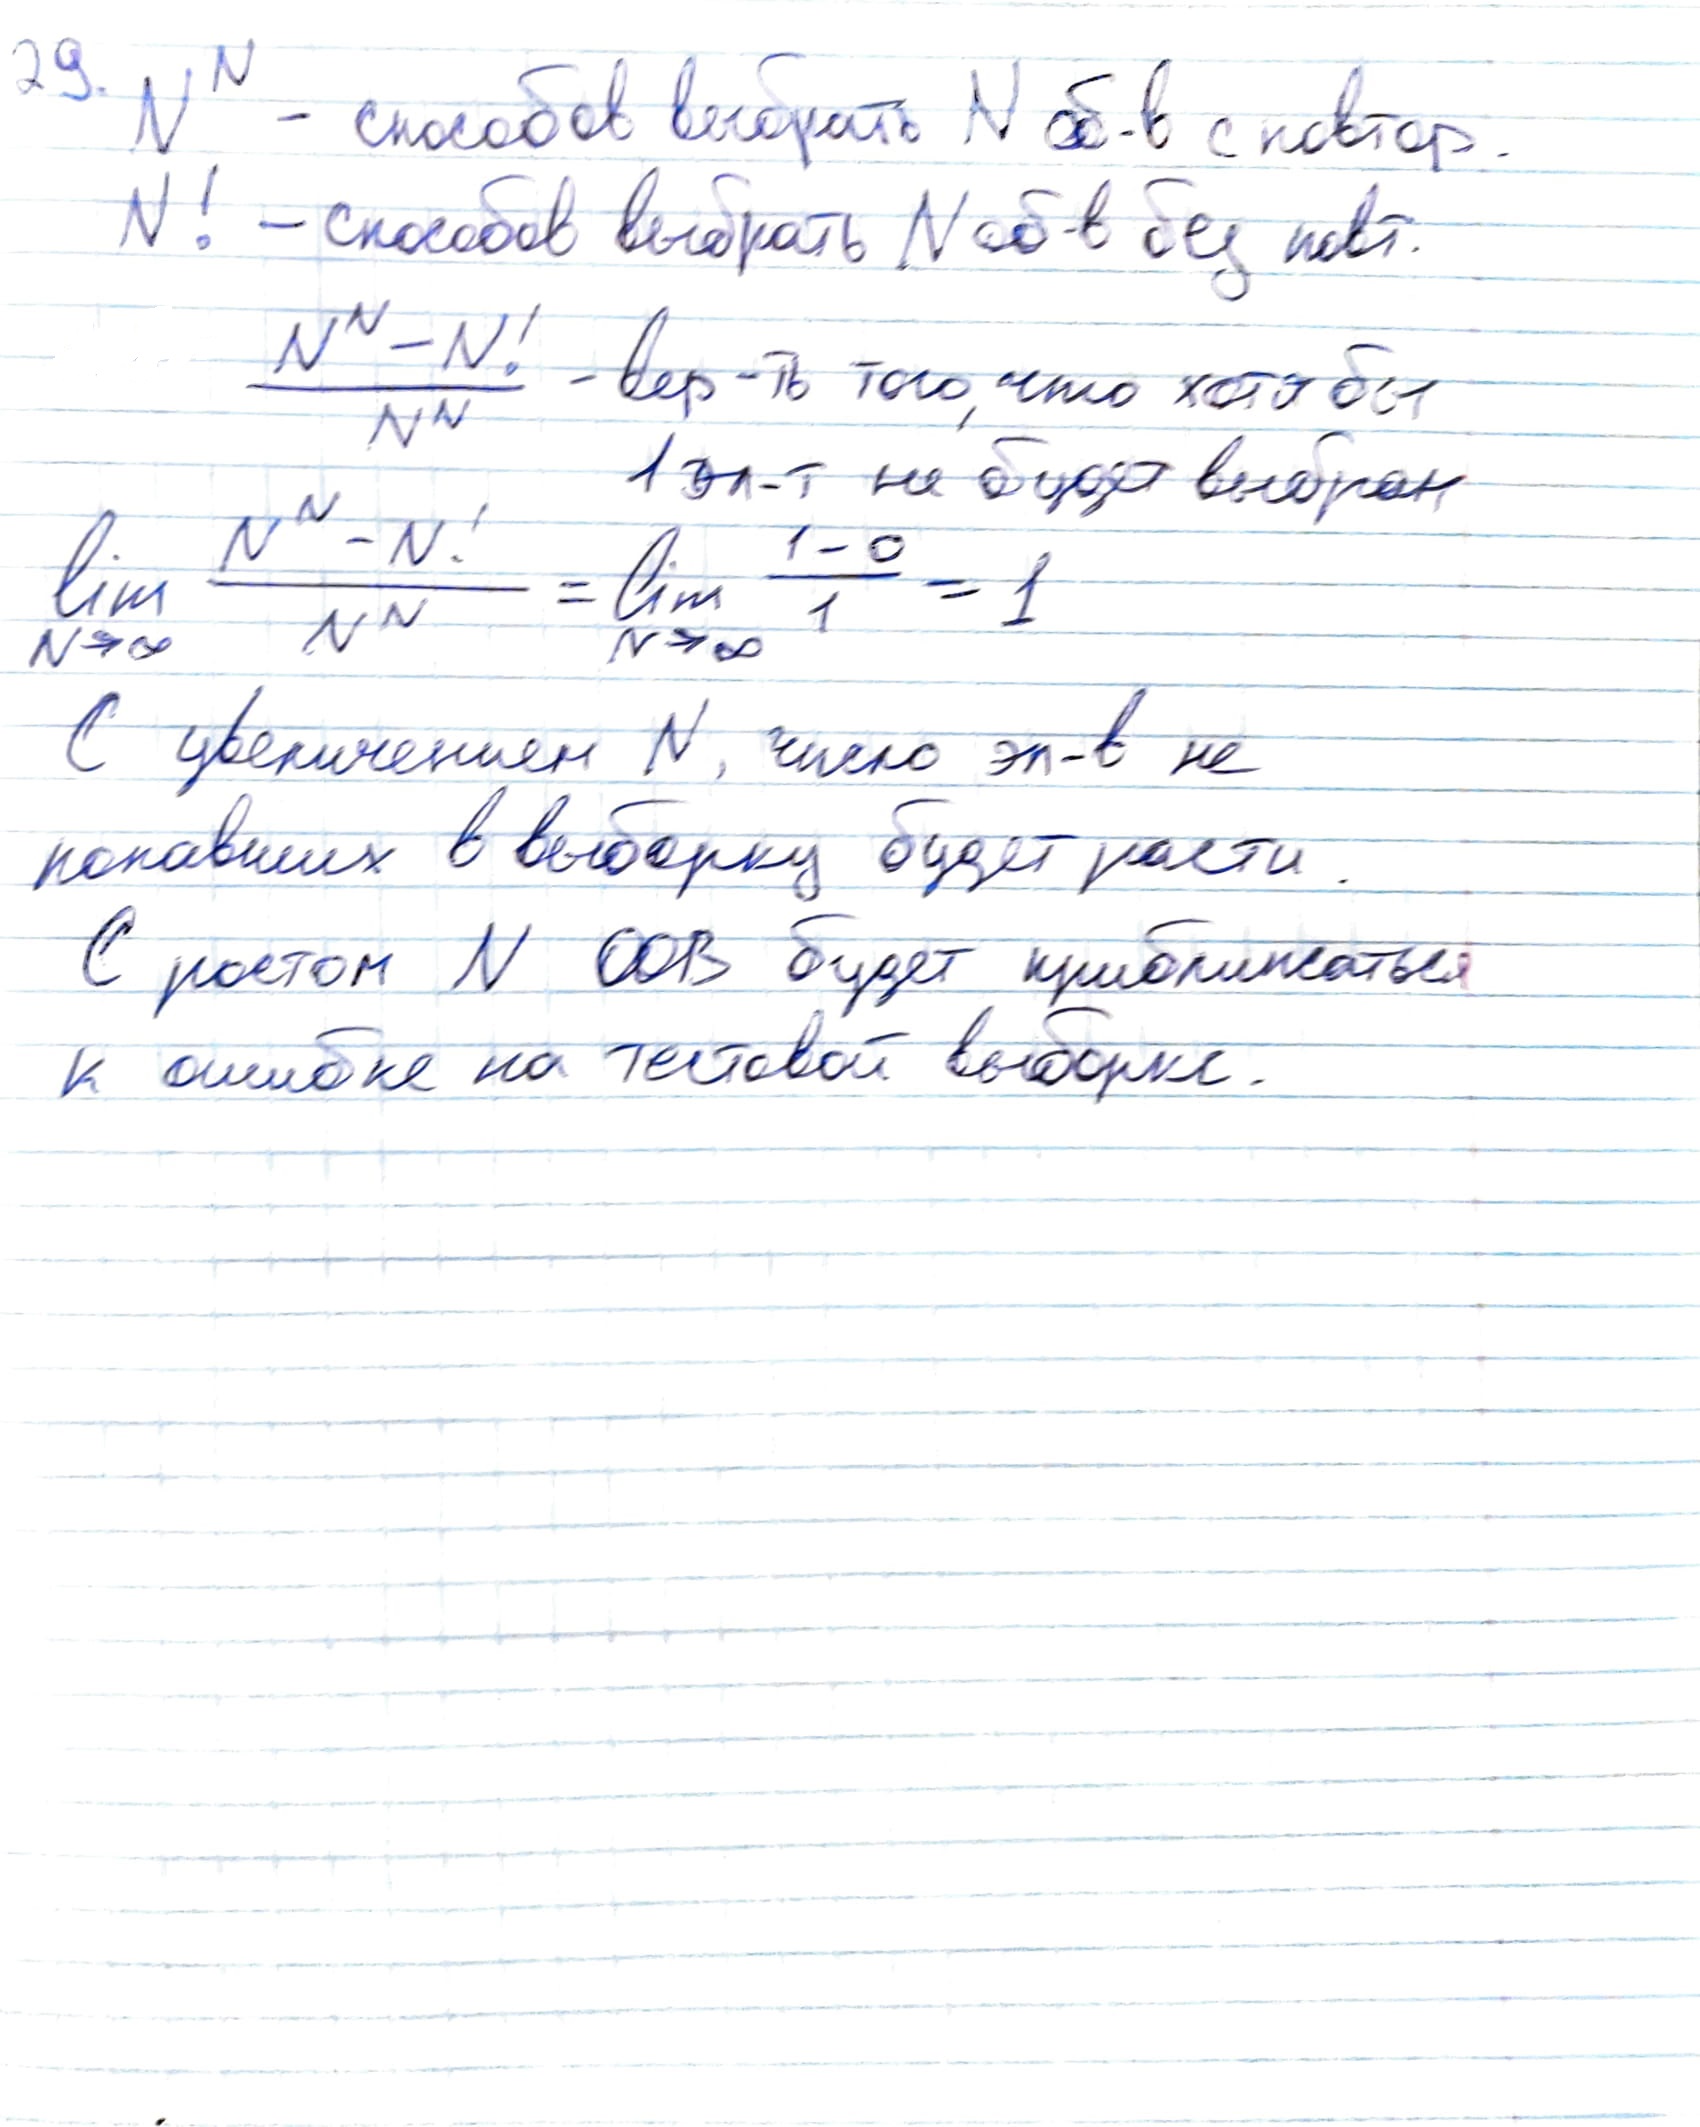 29. N^N - способов выбрать N об-в с повтор.
N! - способов выбрать N об-в без повт.
(N^N - N!) / N^N - вер-ть того, что хотя бы
1 эл-т не будет выбран
lim N→∞ (N^N - N!) / N^N = lim N→∞ (1 - 0) / 1 = 1
С увеличением N, число эл-в не
попавших в выборку будет расти.
С ростом N OOB будет приближаться
к ошибке на тестовой выборке.